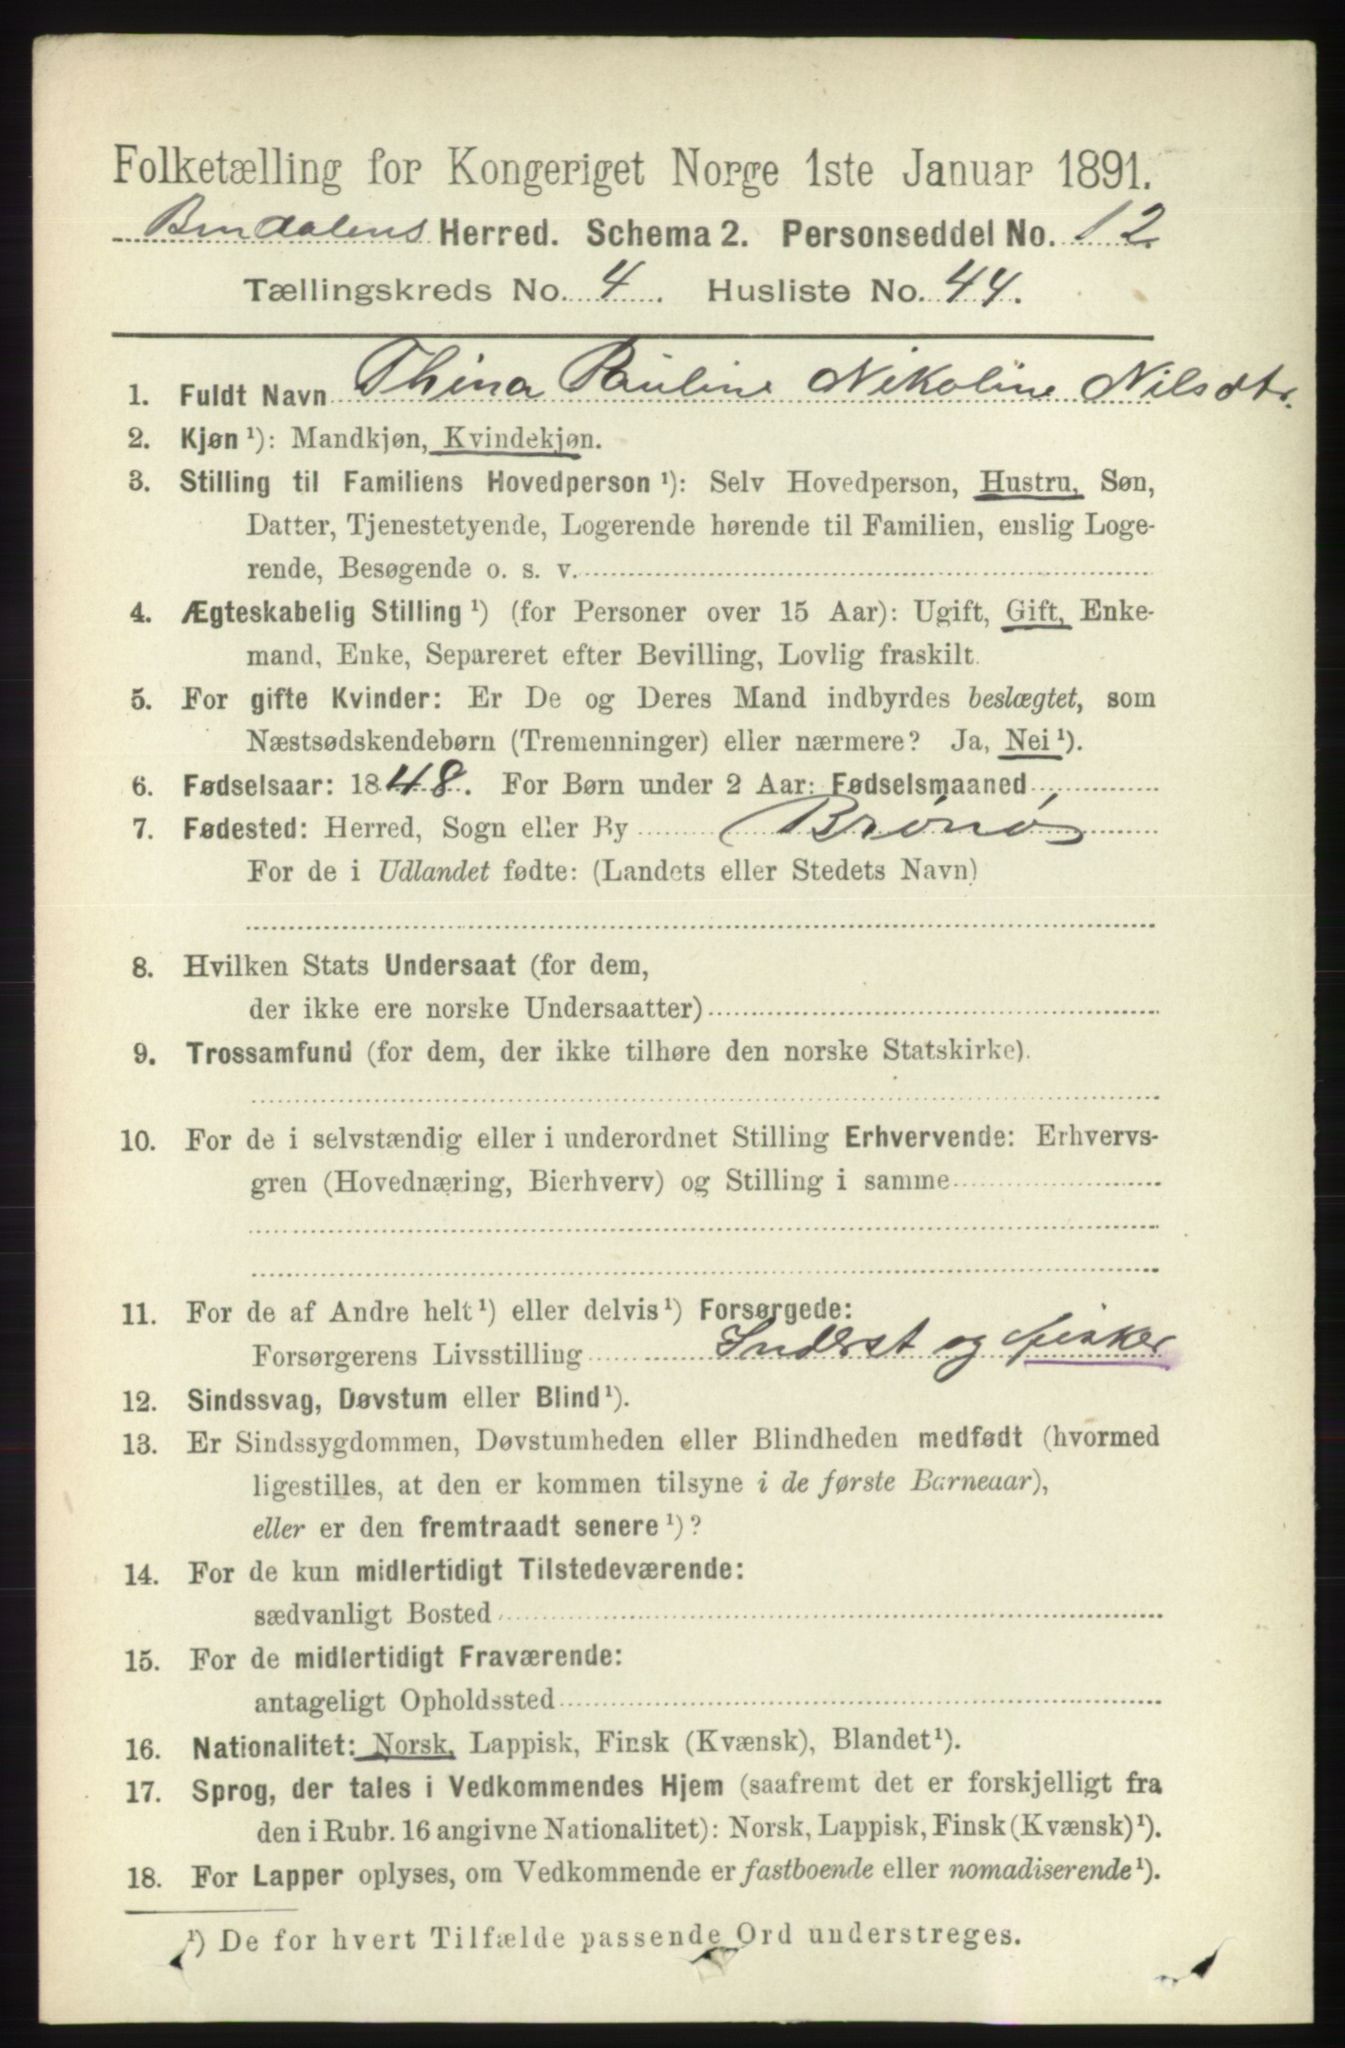 Folketælling for Kongeriget Norge 1ste Januar 1891.
Bindalens Herred. Schema 2. Personseddel No. 12.
Tællingskreds No. 4. Husliste No. 44.
1. Fuldt Navn Thina Pauline Nikoline Nilsdtr.
2. Kjøn ¹): Mandkjøn, Kvindekjøn.
3. Stilling til Familiens Hovedperson ¹): Selv Hovedperson, Hustru, Søn,
Datter, Tjenestetyende, Logerende hørende til Familien, enslig Loge-
rende, Besøgende o. s. v.
4. Ægteskabelig Stilling ¹) (for Personer over 15 Aar): Ugift, Gift, Enke-
mand, Enke, Separeret efter Bevilling, Lovlig fraskilt.
5. For gifte Kvinder: Er De og Deres Mand indbyrdes beslægtet, som
Næstsødskendebørn (Tremenninger) eller nærmere? Ja, Nei ¹).
6. Fødselsaar: 1848. For Børn under 2 Aar: Fødselsmaaned
7. Fødested: Herred, Sogn eller By Brønø
For de i Udlandet fødte: (Landets eller Stedets Navn)
8. Hvilken Stats Undersaat (for dem,
der ikke ere norske Undersaatter)
9. Trossamfund (for dem, der ikke tilhøre den norske Statskirke).
10. For de i selvstændig eller i underordnet Stilling Erhvervende: Erhvervs-
gren (Hovednæring, Bierhverv) og Stilling i samme
11. For de af Andre helt ¹) eller delvis ¹) Forsørgede:
Forsørgerens Livsstilling Inderst og fisker
12. Sindssvag, Døvstum eller Blind ¹).
13. Er Sindssygdommen, Døvstumheden eller Blindheden medfødt (hvormed
ligestilles, at den er kommen tilsyne i de første Barneaar),
eller er den fremtraadt senere ¹)?
14. For de kun midlertidigt Tilstedeværende:
sædvanligt Bosted
15. For de midlertidigt Fraværende:
antageligt Opholdssted
16. Nationalitet: Norsk, Lappisk, Finsk (Kvænsk), Blandet ¹).
17. Sprog, der tales i Vedkommendes Hjem (saafremt det er forskjelligt fra
den i Rubr. 16 angivne Nationalitet): Norsk, Lappisk, Finsk (Kvænsk) ¹).
18. For Lapper oplyses, om Vedkommende er fastboende eller nomadiserende ¹).
¹) De for hvert Tilfælde passende Ord understreges.